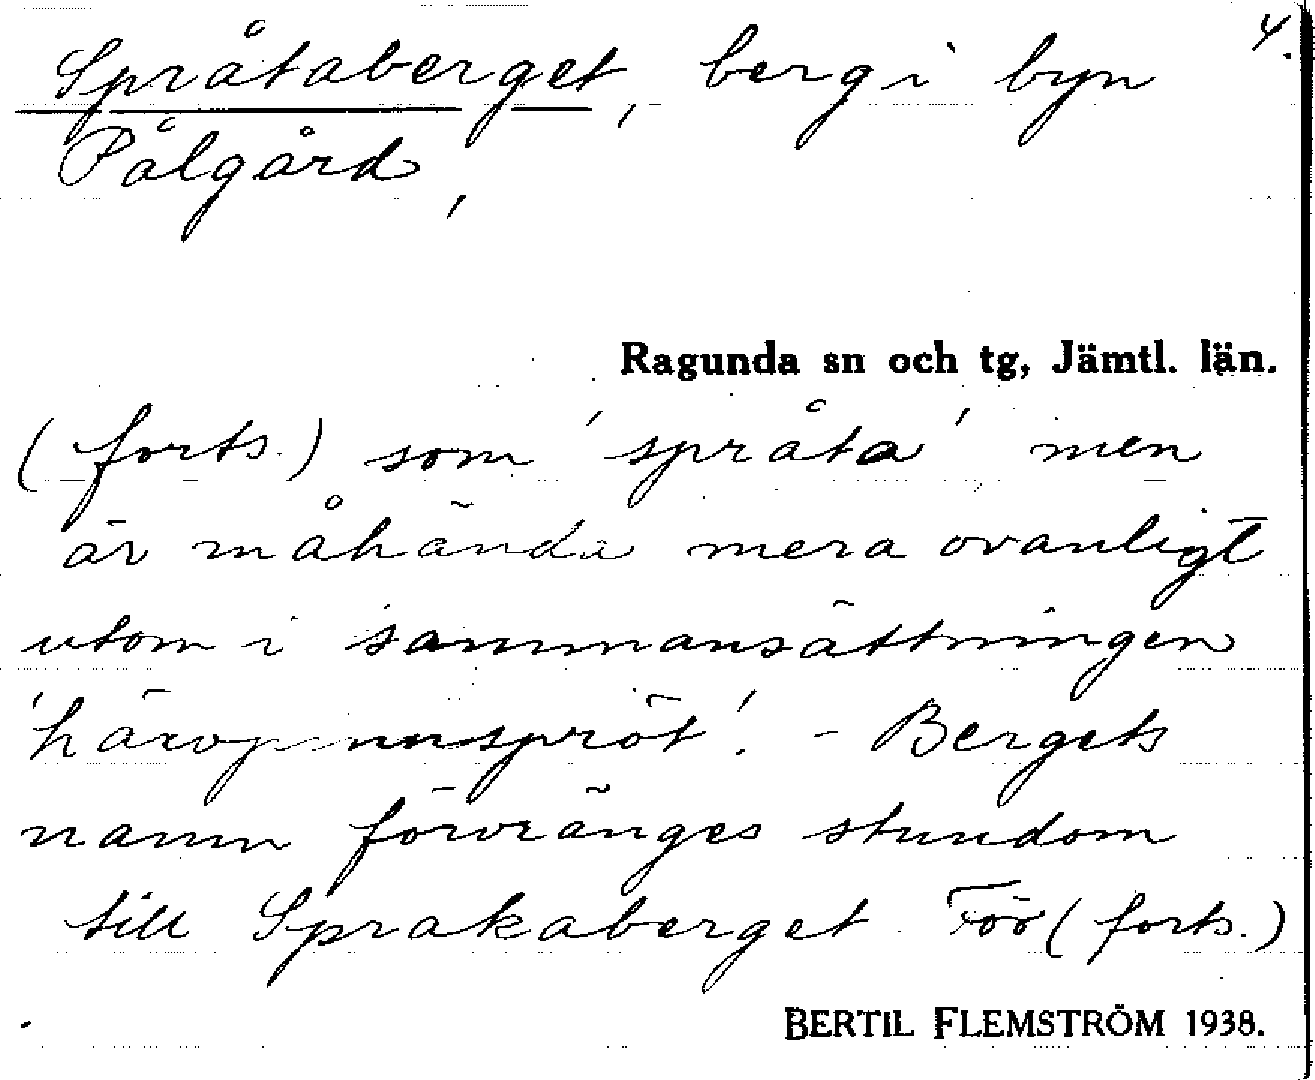 4.
Språtaberget, berg i byn
Pålgård,
Ragunda sn och tg, Jämtl. län.
(forts.) som 'språta' men
är måhända mera ovanligt
utom i sammansättningen
'härvpinnspröt'. - Bergets
namn förvränges stundom
till Sprakaberget För (forts.)
BERTIL FLEMSTRÖM 1938.